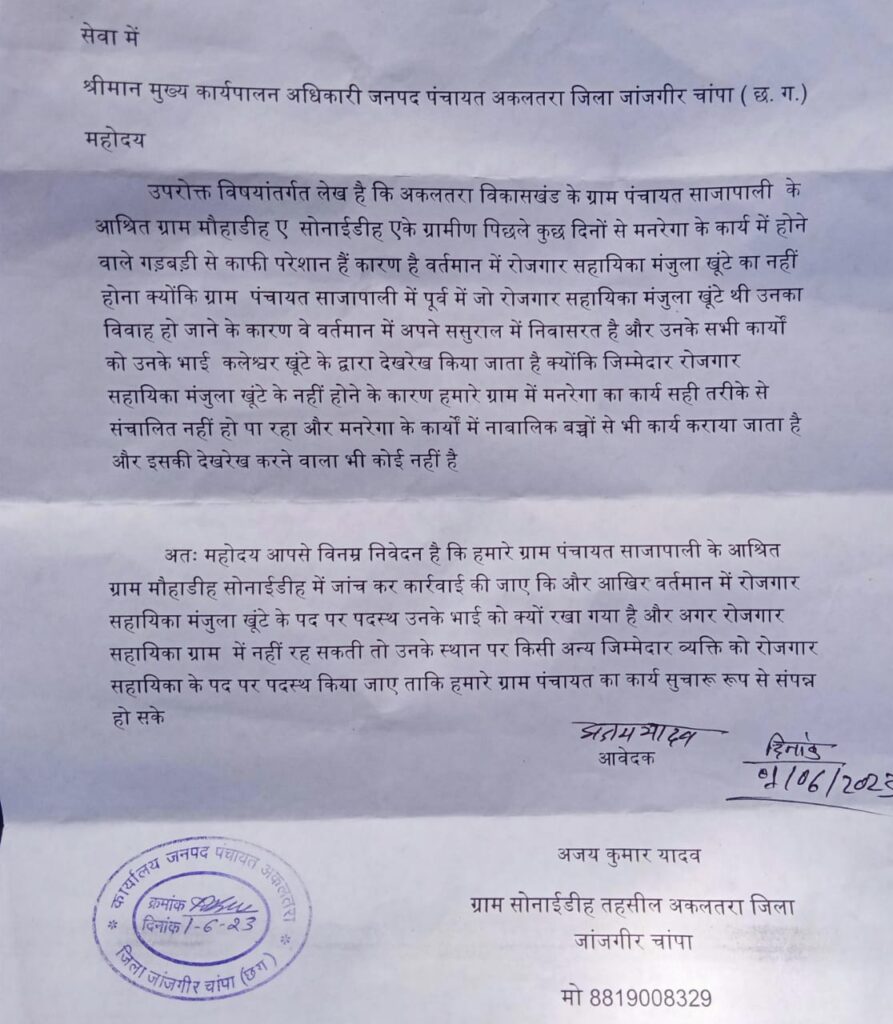 सेवा में
श्रीमान मुख्य कार्यपालन अधिकारी जनपद पंचायत अकलतरा जिला जांजगीर चांपा ( छ. ग.)
महोदय
उपरोक्त विषयांतर्गत लेख है कि अकलतरा विकासखंड के ग्राम पंचायत साजापाली के
आश्रित ग्राम मौहाडीह ए सोनाईडीह एके ग्रामीण पिछले कुछ दिनों से मनरेगा के कार्य में होने
वाले गड़बड़ी से काफी परेशान हैं कारण है वर्तमान में रोजगार सहायिका मंजुला खूंटे का नहीं
होना क्योंकि ग्राम पंचायत साजापाली में पूर्व में जो रोजगार सहायिका मंजुला खूंटे थी उनका
विवाह हो जाने के कारण वे वर्तमान में अपने ससुराल में निवासरत है और उनके सभी कार्यों
को उनके भाई कलेश्वर खूंटे के द्वारा देखरेख किया जाता है क्योंकि जिम्मेदार रोजगार
सहायिका मंजुला खूंटे के नहीं होने के कारण हमारे ग्राम में मनरेगा का कार्य सही तरीके से
संचालित नहीं हो पा रहा और मनरेगा के कार्यों में नाबालिक बच्चों से भी कार्य कराया जाता है
और इसकी देखरेख करने वाला भी कोई नहीं है
अतः महोदय आपसे विनम्र निवेदन है कि हमारे ग्राम पंचायत साजापाली के आश्रित
ग्राम मौहाडीह सोनाईडीह में जांच कर कार्रवाई की जाए कि और आखिर वर्तमान में रोजगार
सहायिका मंजुला खूंटे के पद पर पदस्थ उनके भाई को क्यों रखा गया है और अगर रोजगार
सहायिका ग्राम में नहीं रह सकती तो उनके स्थान पर किसी अन्य जिम्मेदार व्यक्ति को रोजगार
सहायिका के पद पर पदस्थ किया जाए ताकि हमारे ग्राम पंचायत का कार्य सुचारू रूप से संपन्न
हो सके
यादव
आवेदक
दिनांक
01/06/2023
अजय कुमार यादव
ग्राम सोनाईडीह तहसील अकलतरा जिला
जांजगीर चांपा
मो 8819008329
कार्यालय जनपद पंचायत अकलतरा
क्रमांक
दिनांक 1-6-23
जिला जांजगीर चांपा (छग)